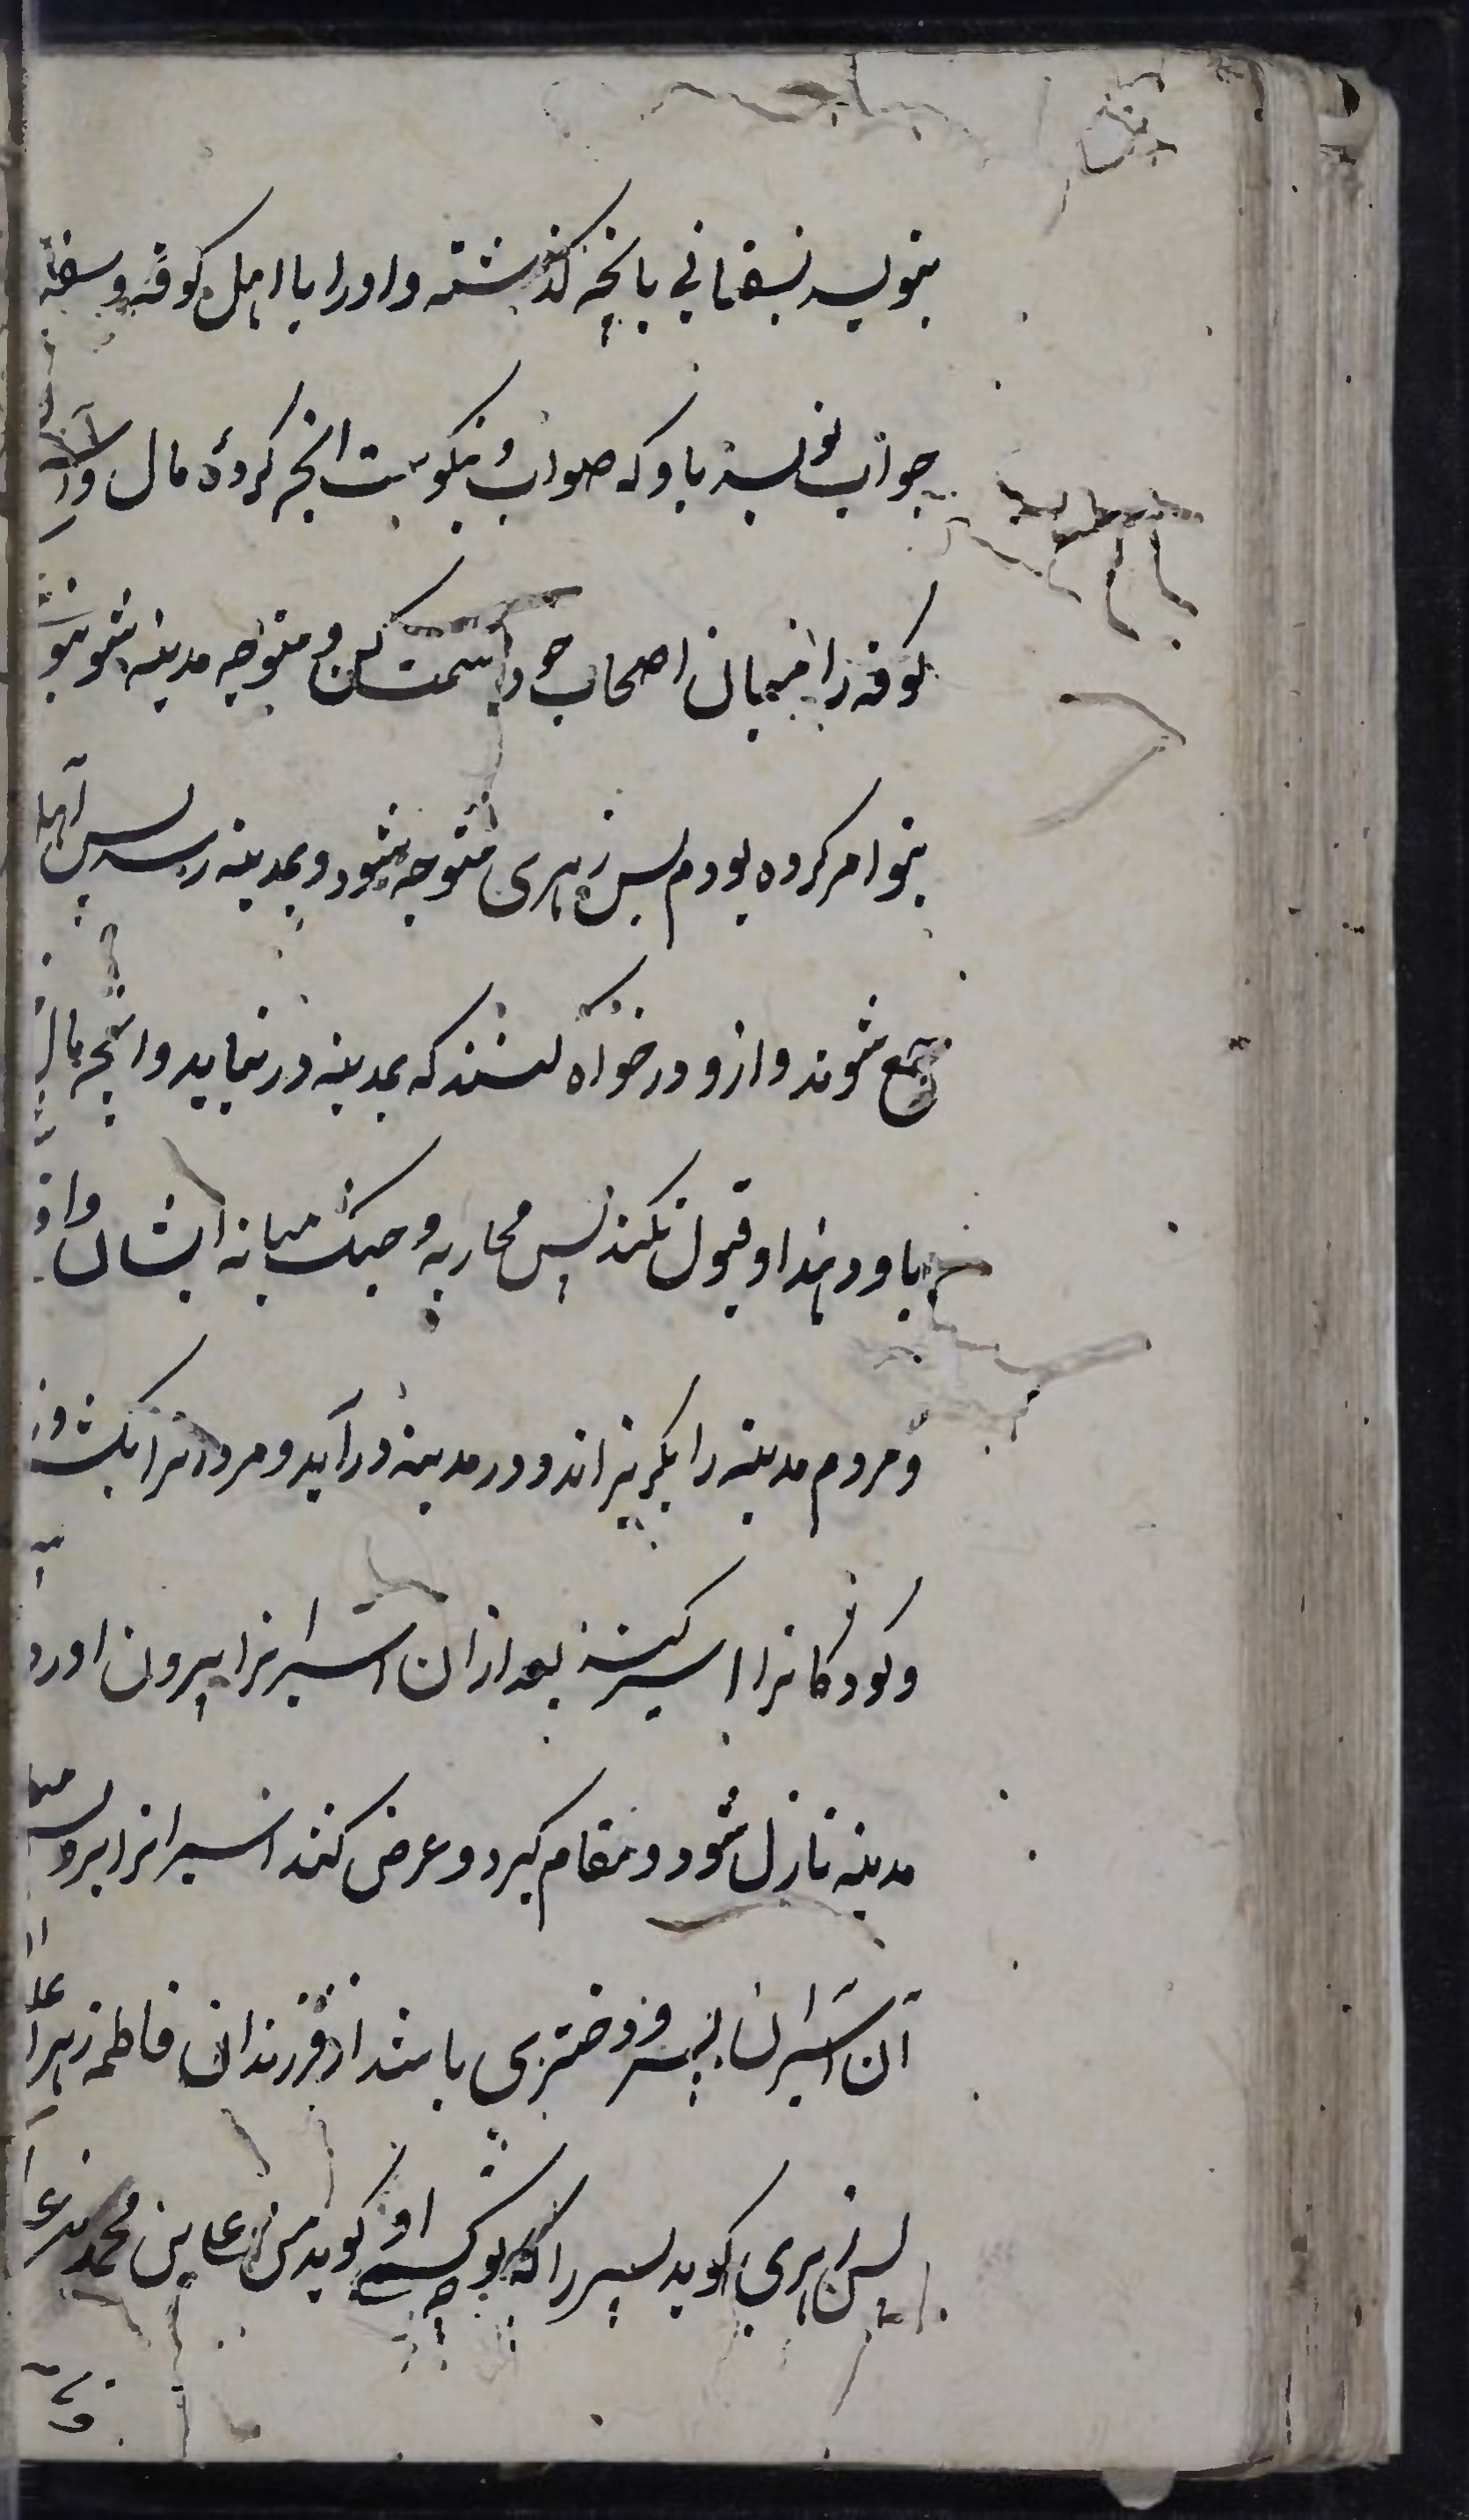 بنویسد بسفیانی بانچه گذشته و او را با اهل کوفه و سفیا
جواب نویسد باو که صواب و نیکوست انچه کردهٔ مال و
کوفه را میان اصحاب خود قسمت کن و متوجه مدینه شو بنو
بتو امر کرده بودم پس زهری متوجه شود و بمدینه رسد پس اهل
جمع شوند و ازو درخواه کنند که بمدینه در نیاید و انچه مال
باو دهند او قبول نکند پس محاربه و جنک میانه ایشان واقع
و مردم مدینه را بگریزاند و در مدینه درآید و مردانرا بکشد و ز
و کودکانرا اسیر کنند بعد از ان اسیرانرا بیرون اورد
مدینه نازل شود و مقام گیرد و عرض کنند اسیرانرا برو پس میا
آن اسیران پسر و دختری باشند از فرزندان فاطمه زهرا علـ
پس زهری گوید پسر را که تو کیستی او گوید من علی بن محمد